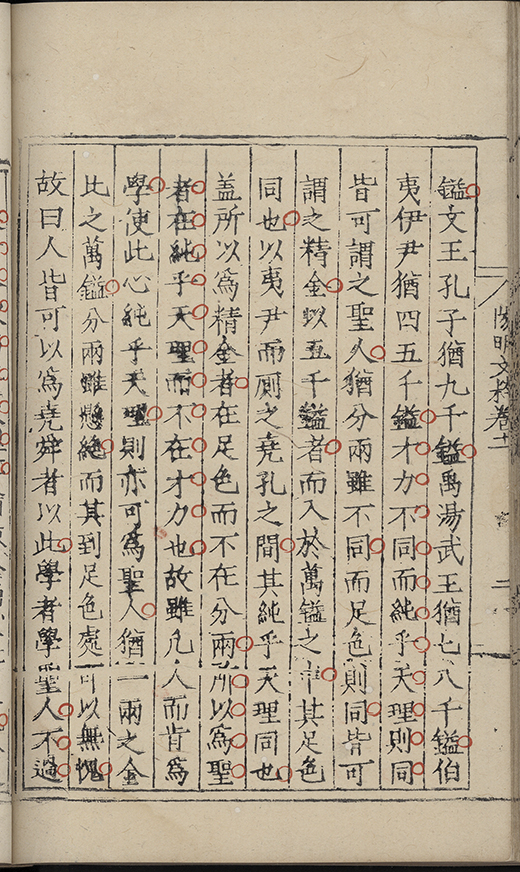 鎰文王孔子猶九千鎰禹湯武王猶七八千鎰伯
夷伊尹猶四五千鎰才力不同而純乎天理則同
皆可謂之聖人猶分兩雖不同而足色則同皆可
謂之精金以五千鎰者而入於萬鎰之中其足色
同也以夷尹而厠之堯孔之間其純乎天理同也
盖所以爲精金者在足色而不在分兩所以爲聖
者在純乎天理而不在才力也故雖凡人而肯爲
學使此心純乎天理則亦可爲聖人猶一兩之金
比之萬鎰分兩雖懸絶而其到足色處可以無愧
故曰人皆可以爲堯舜者以此學者學聖人不過
陽明文粹卷十一
二